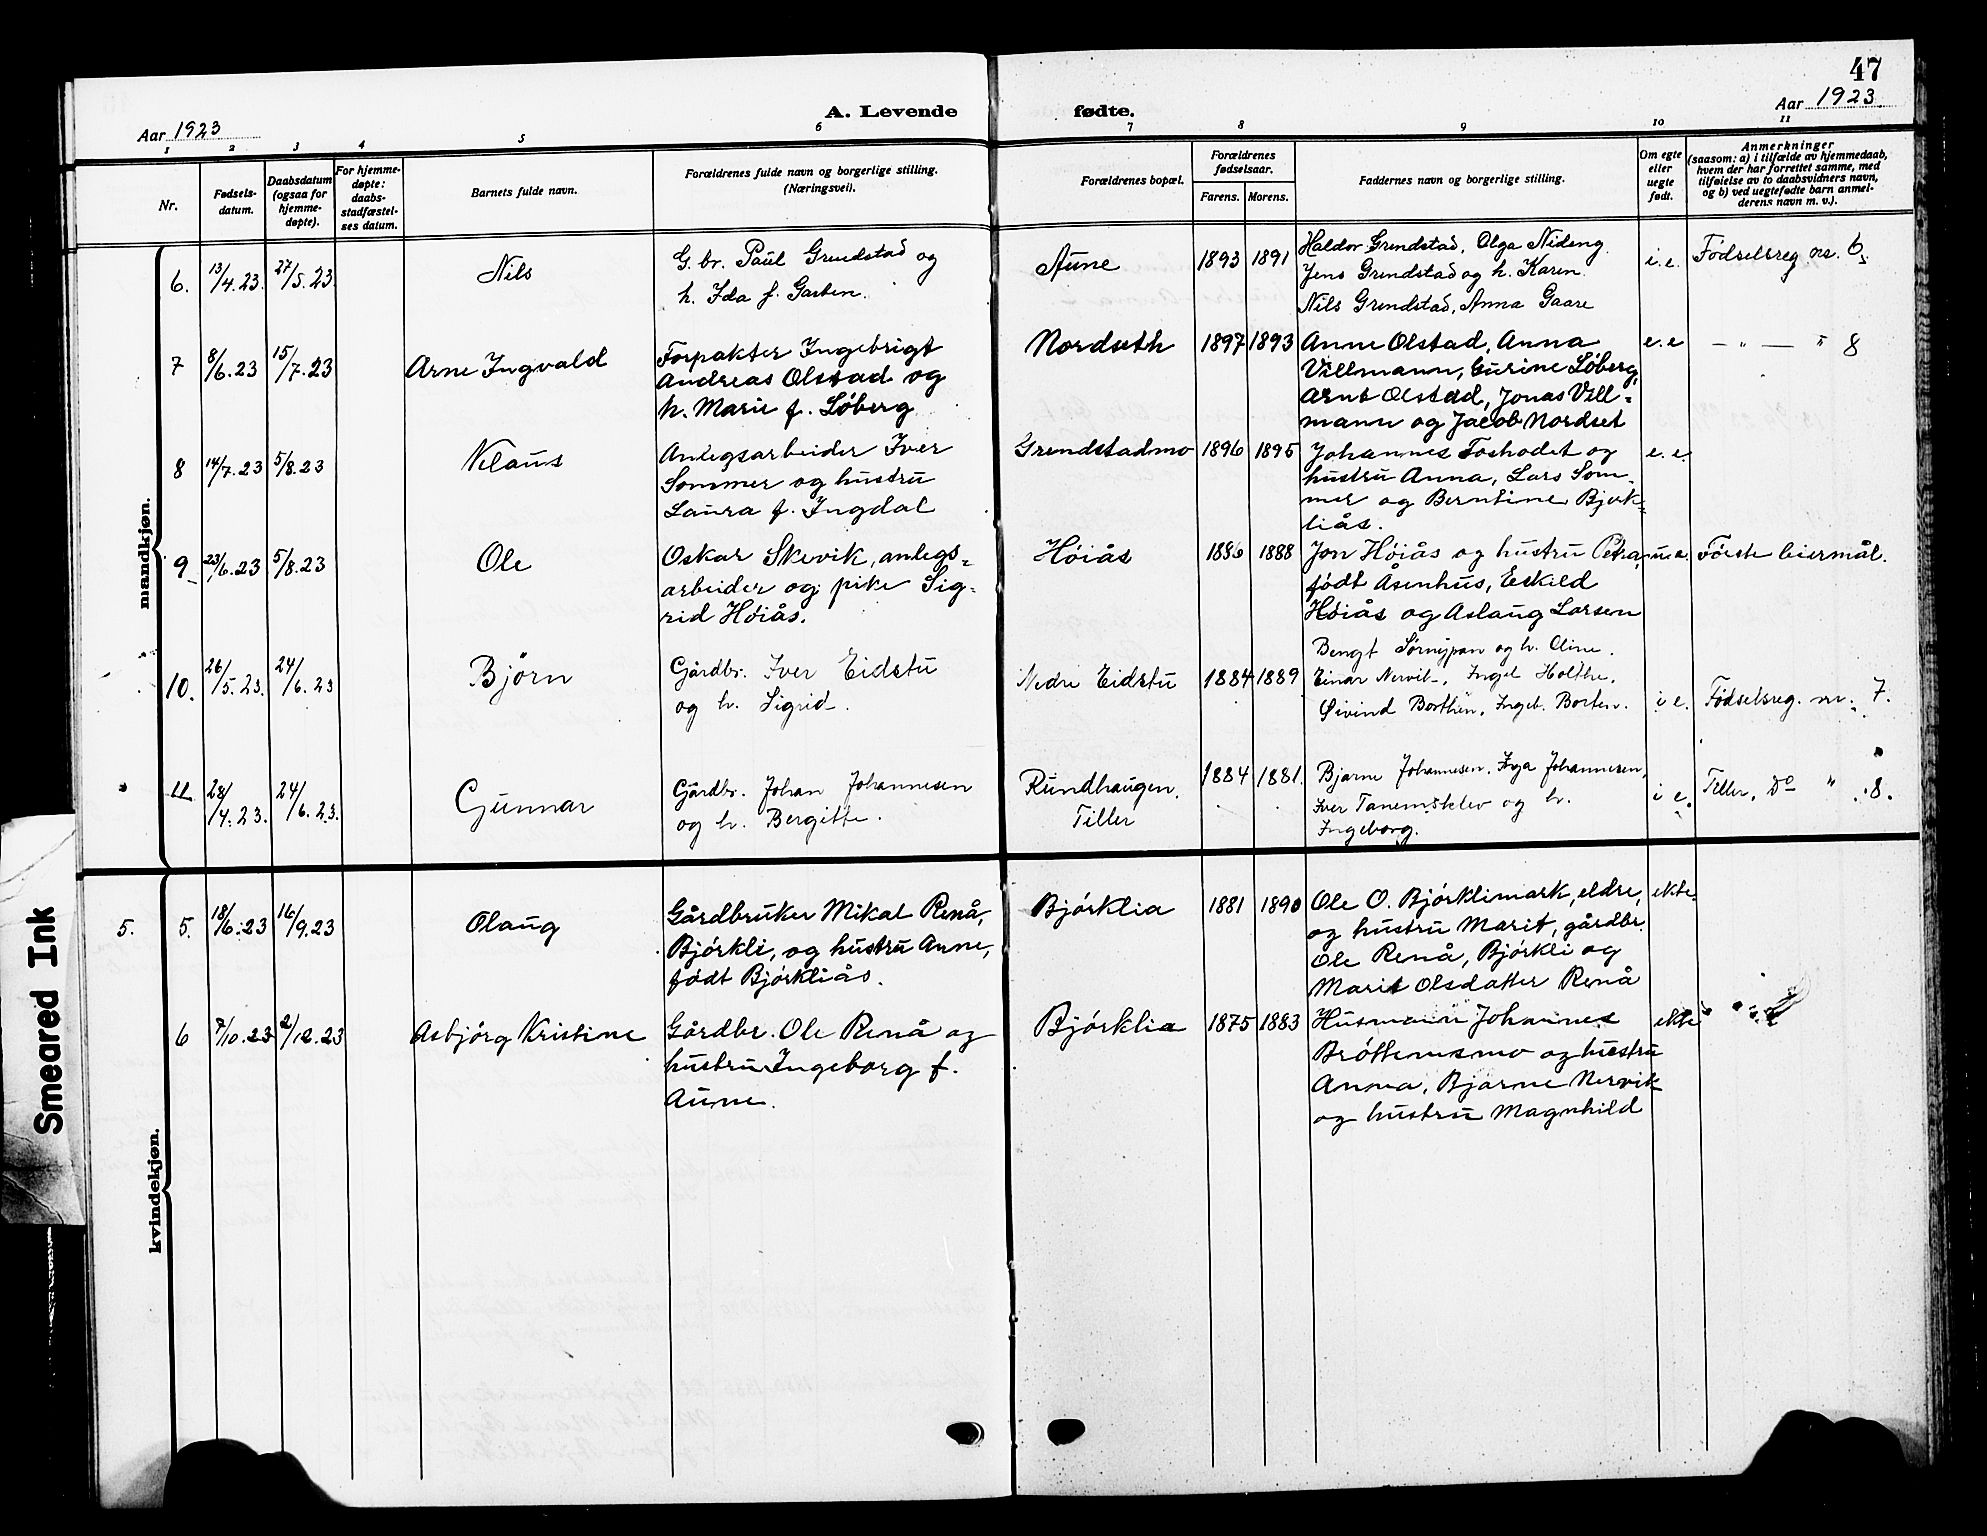 47
A. Levende fødte.
Aar 1923
Aar 1923
1 2 3 4 5 6 7 8 9 10 11
Nr.
Fødsels-
datum.
Daabsdatum
(ogsaa for
hjemme-
døpte).
For hjemme-
døpte:
daabs-
stadfæstel-
ses datum.
Barnets fulde navn.
Forældrenes fulde navn og borgerlige stilling.
(Næringsvei).
Forældrenes bopæl.
Forældrenes
fødselsaar.
Farens. Morens.
Faddernes navn og borgerlige stilling.
Om egte
eller
uegte
født.
Anmerkninger
(saasom: a) i tilfælde av hjemmedaab,
hvem der har forrettet samme, med
tilføielse av to daabsvidners navn,
og b) ved uegtefødte barn anmel-
derens navn m. v.).
mandkjøn.
6. 13/4.23. 27/5.23. Nils
G. br. Paul Grendstad og
h. Ida f. Garten.
Aune 1893 1891
Haldor Grendstad, Olga Nideng.
Jens Grendstad og h. Karen.
Nils Grendstad, Anna Gaare
i. e. Fødselsreg. nr. 6.
7 8/6.23 15/7.23 Arne Ingvald
Forpakter Ingebrigt
Andreas Olstad og
h. Marie f. Løberg
Nordseth 1897 1893
Anne Olstad, Anna
Villmann, Gurine Løberg,
Arnt Olstad, Jonas Vill=
mann og Jacob Nordset
e. e — " — " 8
8 14/7.23 5/8.23 Klaus
Anlegsarbeider Iver
Sommer og hustru
Laura f. Ingdal
Grendstadmo 1896 1895
Johannes Foshodet og
hustru Anna, Lars Som-
mer og Berntine Bjørk=
liås.
e. e.
9 23/6.23 5/8.23 Ole
Oskar Skevik, anlegs=
arbeider og pike Sig-
rid Høiås.
Høiås 1886 1888
Jon Høiås og hustru Petra,
født Åsenhus, Eskild
Høiås og Aslaug Larsen
u. e. Første leiermål.
10. 26/5.23. 24/6.23 Bjørn
Gårdbr. Iver Eidstu
og h. Sigrid.
Nedre Eidstu 1884 1889
Bengt Sørnypan og h. Oline.
Einar Nervik, Ingel Holthe,
Øivind Borthen, Ingeb. Borten.
i e. Fødselsreg. nr. 7.
11 28/4.23. 24/6.23. Gunnar
Gårdbr. Johan Johannesen
og h. Bergitte.
Rundhaugen,
Tiller
1884 1881.
Bjarne Johannesen, Johannesen,
Iver Tanemsklev og h.
Ingeborg.
i e. Tiller, Do " 8.
kvindekjøn.
5. 5. 18/6.23 16/9.23 Olaug
Gårdbruker Mikal Renå,
Bjørkli, og hustru Anne,
født Bjørkliås.
Bjørklia 1881 1890
Ole O. Bjørklimark, eldre,
og hustru Marit, gårdbr.
Ole Renå, Bjørkli og
Marit Olsdatter Renå
ekte
6 7/10.23 2/12.23 Asbjørg Kristine
Gårdbr. Ole Renå og
hustru Ingeborg f.
Aune.
Bjørklia 1875 1883
Husmann Johannes
Brøttemsmo og hustru
Anna, Bjarne Nervik
og hustru Magnhild
ekte
Smeared Ink